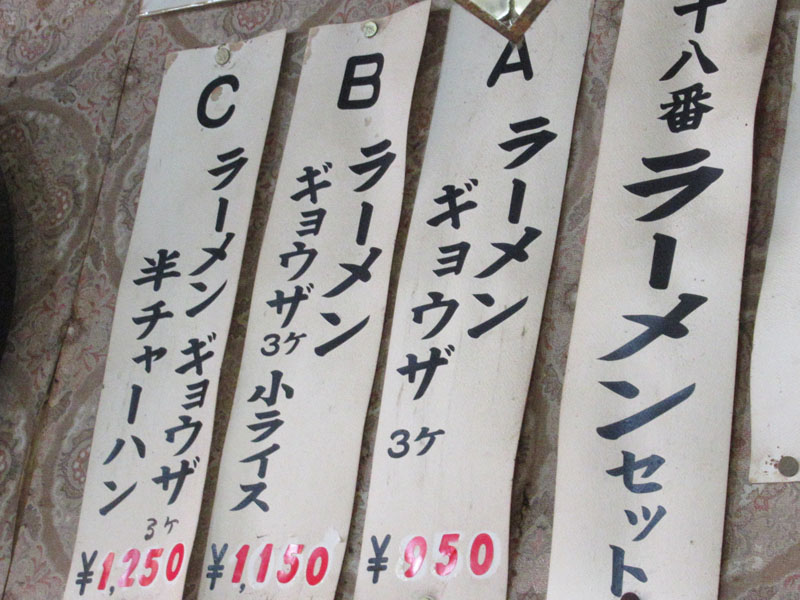 十八番
ラーメンセット
A
ラーメン
ギョウザ 3ケ
¥950
B
ラーメン
ギョウザ 3ケ
小ライス
¥1,150
C
ラーメン ギョウザ 3ケ
半チャーハン
¥1,250